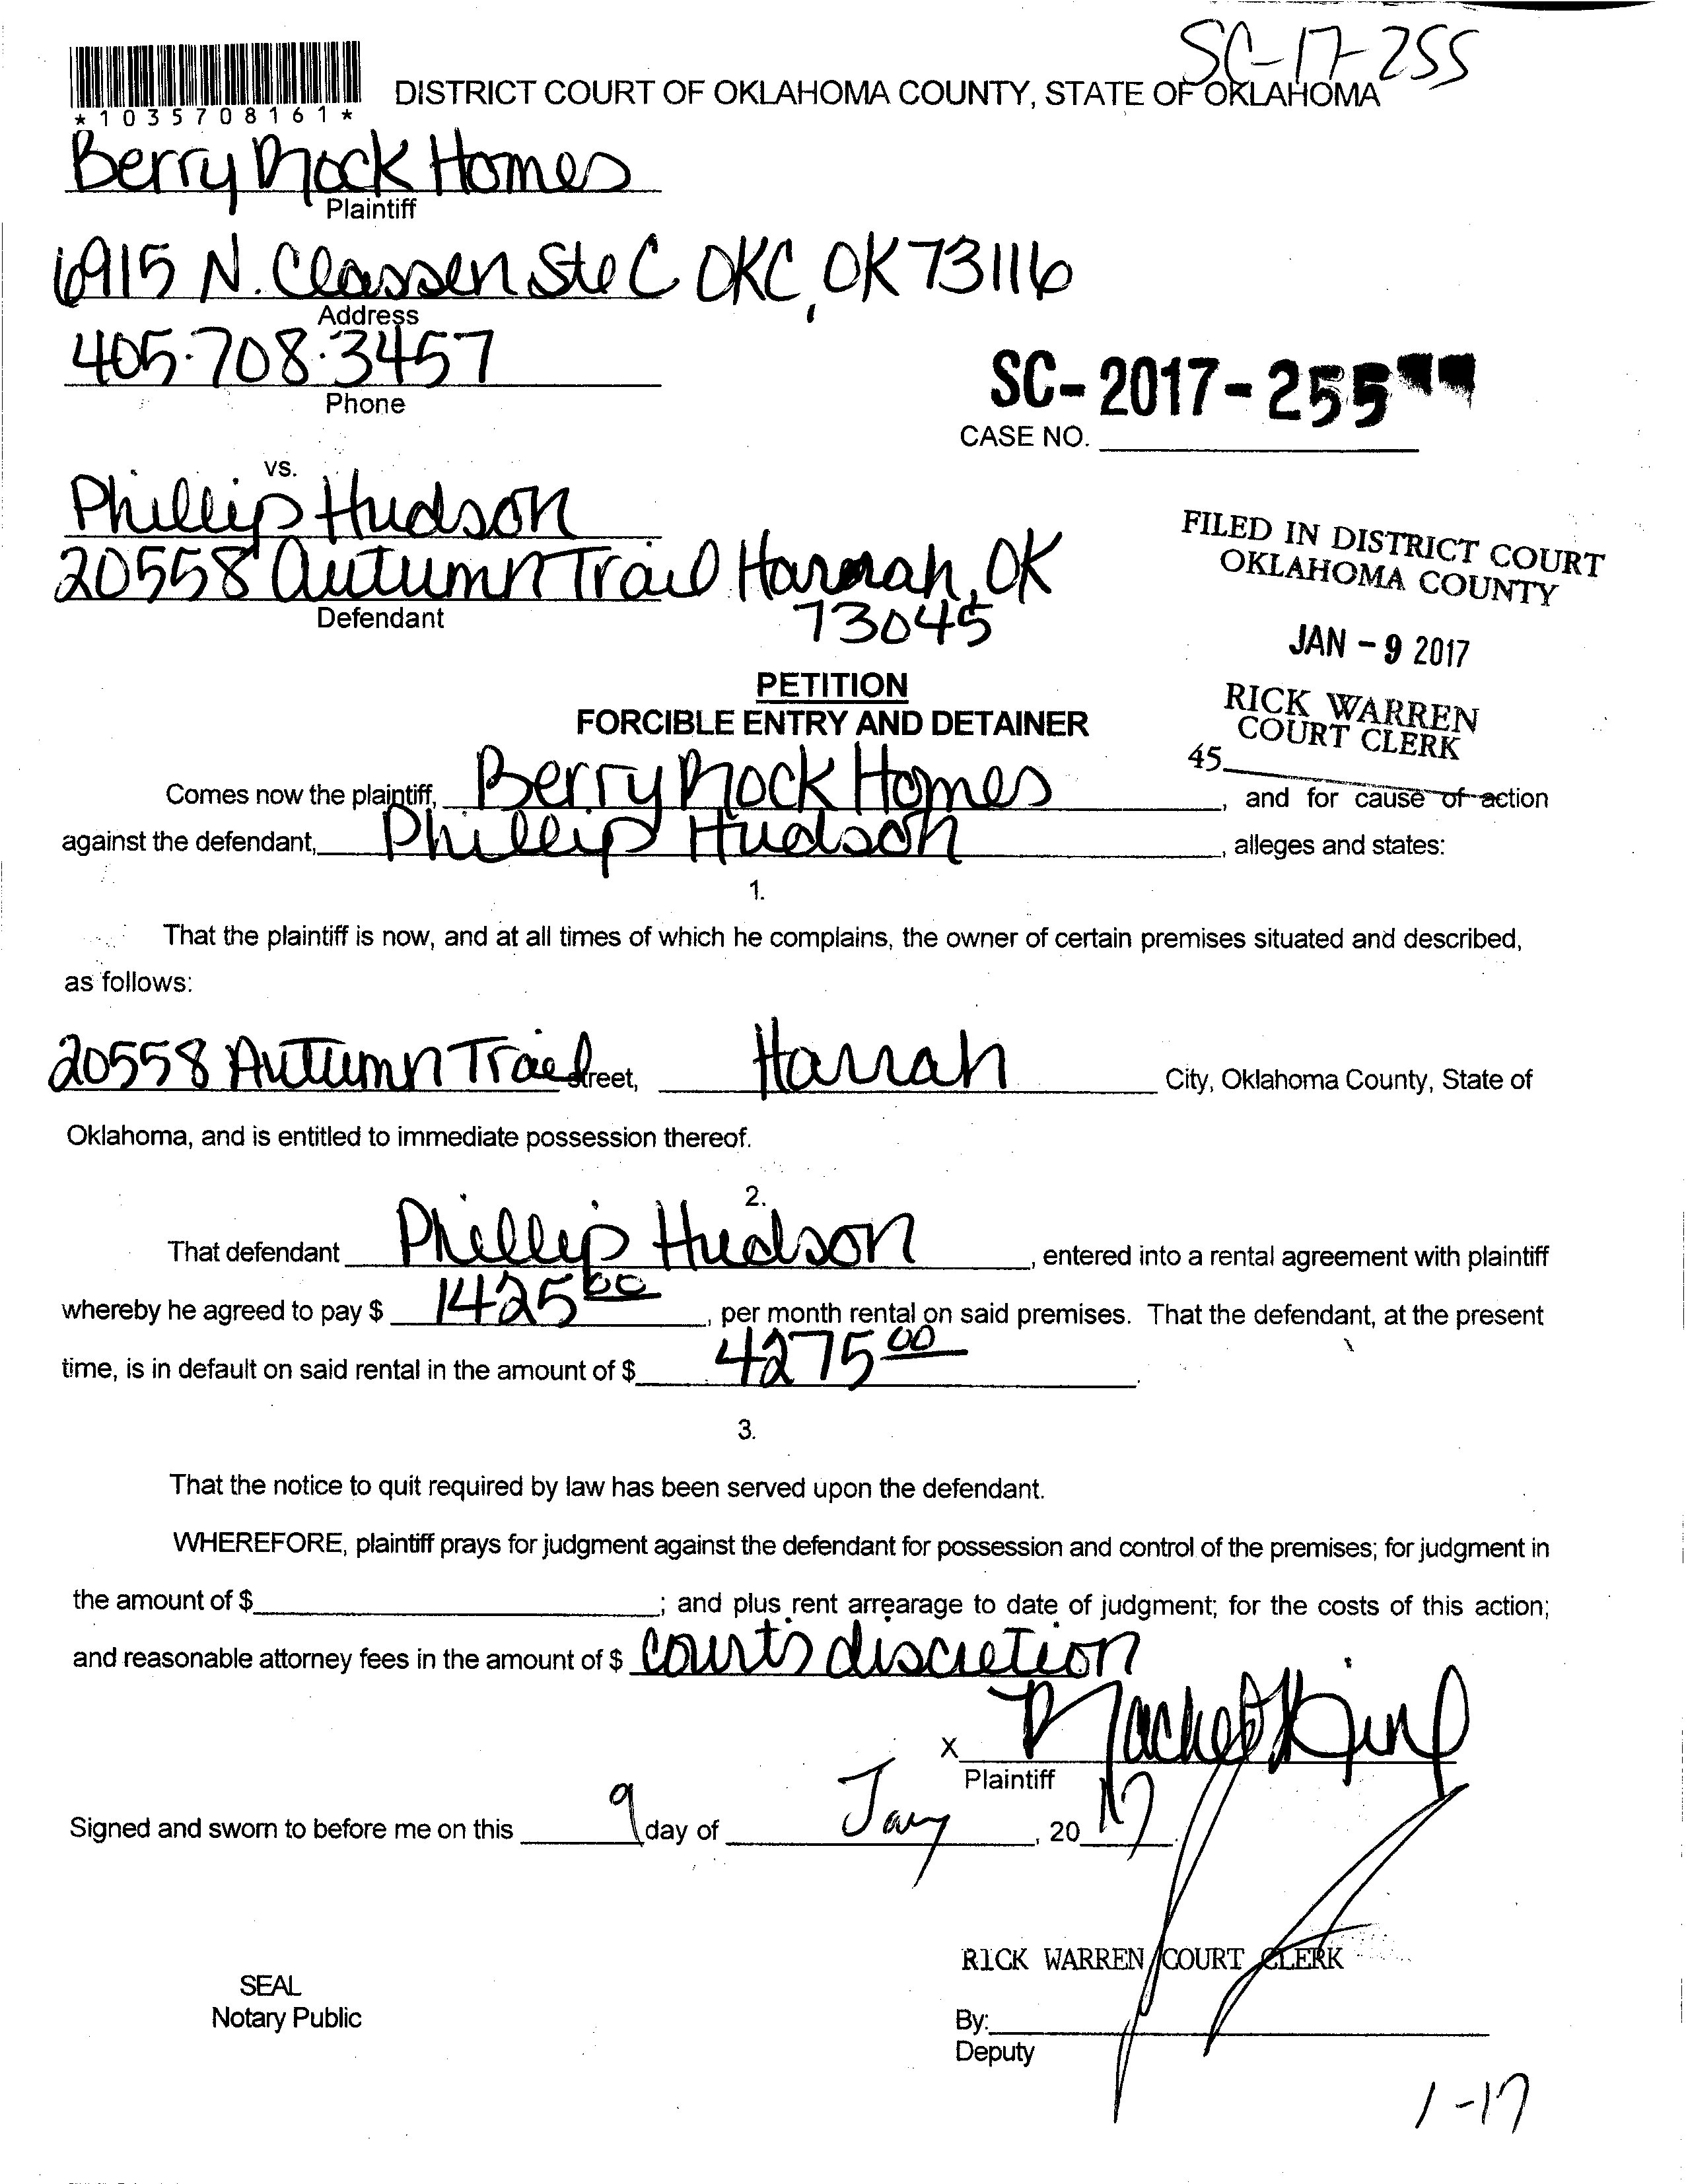 SC-17-255
*1035708161*
DISTRICT COURT OF OKLAHOMA COUNTY, STATE OF OKLAHOMA
Berry Rock Homes
Plaintiff
6915 N. Classen Ste C OKC, OK 73116
Address
405.708.3457
Phone
SC-2017-255
CASE NO.
vs.
Phillip Hudson
20558 Autumn Trail Harrah, OK
73045
Defendant
FILED IN DISTRICT COURT
OKLAHOMA COUNTY
JAN - 9 2017
RICK WARREN
COURT CLERK
45
PETITION
FORCIBLE ENTRY AND DETAINER
Comes now the plaintiff, Berry Rock Homes, and for cause of action
against the defendant, Phillip Hudson, alleges and states:
1.
That the plaintiff is now, and at all times of which he complains, the owner of certain premises situated and described,
as follows:
20558 Autumn Trail Street, Harrah City, Oklahoma County, State of
Oklahoma, and is entitled to immediate possession thereof.
2.
That defendant Phillip Hudson, entered into a rental agreement with plaintiff
whereby he agreed to pay $ 1425 00, per month rental on said premises. That the defendant, at the present
time, is in default on said rental in the amount of $ 4275 00.
3.
That the notice to quit required by law has been served upon the defendant.
WHEREFORE, plaintiff prays for judgment against the defendant for possession and control of the premises; for judgment in
the amount of $; and plus rent arrearage to date of judgment; for the costs of this action;
and reasonable attorney fees in the amount of $ courts discretion
X
Plaintiff
Signed and sworn to before me on this 9 day of Jany, 20 17.
RICK WARREN COURT CLERK
SEAL
Notary Public
By:
Deputy
1-17